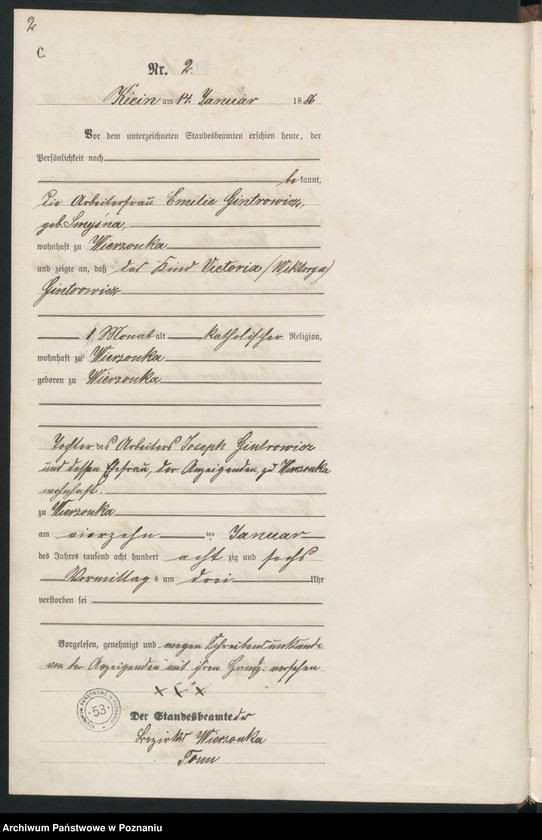 2
C.
Nr. 2.
Kicin am 14. Januar 1886
Vor dem unterzeichneten Standesbeamten erschien heute, der
Persönlichkeit nach
bekannt,
die Arbeiterfrau Emilie Gintrowicz,
geb. Smyśna,
wohnhaft zu Wierzonka
und zeigte an, daß das Kind Victoria (Wiktorya)
Gintrowicz
1 Monat alt katholischer Religion,
wohnhaft zu Wierzonka
geboren zu Wierzonka
Tochter des Arbeiters Joseph Gintrowicz
und dessen Ehefrau, der Anzeigenden, zu Wierzonka
wohnhaft.
zu Wierzonka
am vierzehn ten Januar
des Jahres tausend acht hundert achtzig und sechs
Vormittags um drei Uhr
verstorben sei
Vorgelesen, genehmigt und wegen Schreibensunkunde
von der Anzeigenden mit ihrem Handz. versehen
x x x
Der Standesbeamte des
Bezirks Wierzonka
Tonn
ARCHIWUM PAŃSTWOWE W POZNANIU
53
Archiwum Państwowe w Poznaniu